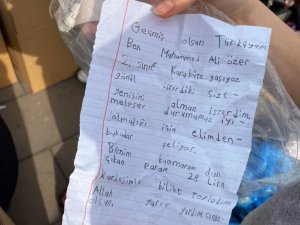 Geçmiş olsun Türkiyem
Ben Muhammed Ali Özer
2. sınıf Karabük yaşıyoz
gönül isterdiki size -
yenisini alman isterdim,
meleser durumumuz iyi -
olmadığı için elimden -
bukadar geliyor.
Benim kumbaram dan
çıkan param 28 lira
Kardeşimle bilikt
Allah yar ve yardımcınız
olsun